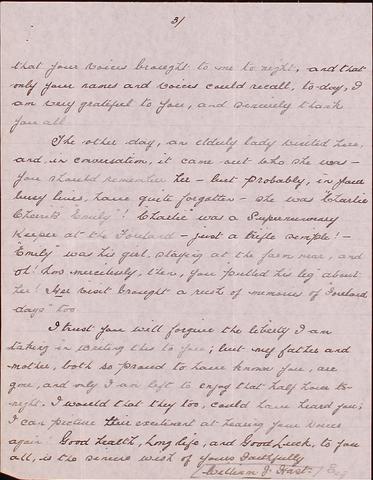 3/
that your voices brought to me to night, and that
only your names and voices could recall, to-day, I
am very grateful to you, and sincerely thank
you all.
The other day, an elderly lady visited here,
and, in conversation, it came out who she was –
you should remember her – but probably, in your
busy lives, have quite forgotten – she was "Charlie
Emily"! "Charlie" was a Supernumary
Keeper at the Foreland – just a trifle simple! –
"Emily" was his girl, staying at the farm near, and
oh! how mercilessly, then, you pulled his leg about
her! Her visit brought a rush of memories of "Foreland
days" too.
I trust you will forgive the liberty I am
taking in writing this to you; but my father and
mother, both so proud to have known you, are
gone, and only I am left to enjoy that half hour to-
night. I would that they too, could have heard you;
I can picture their excitement at hearing your voices
again! Good health, long life, and Good Luck, to you
all, is the sincere wish of yours faithfully
(William J.